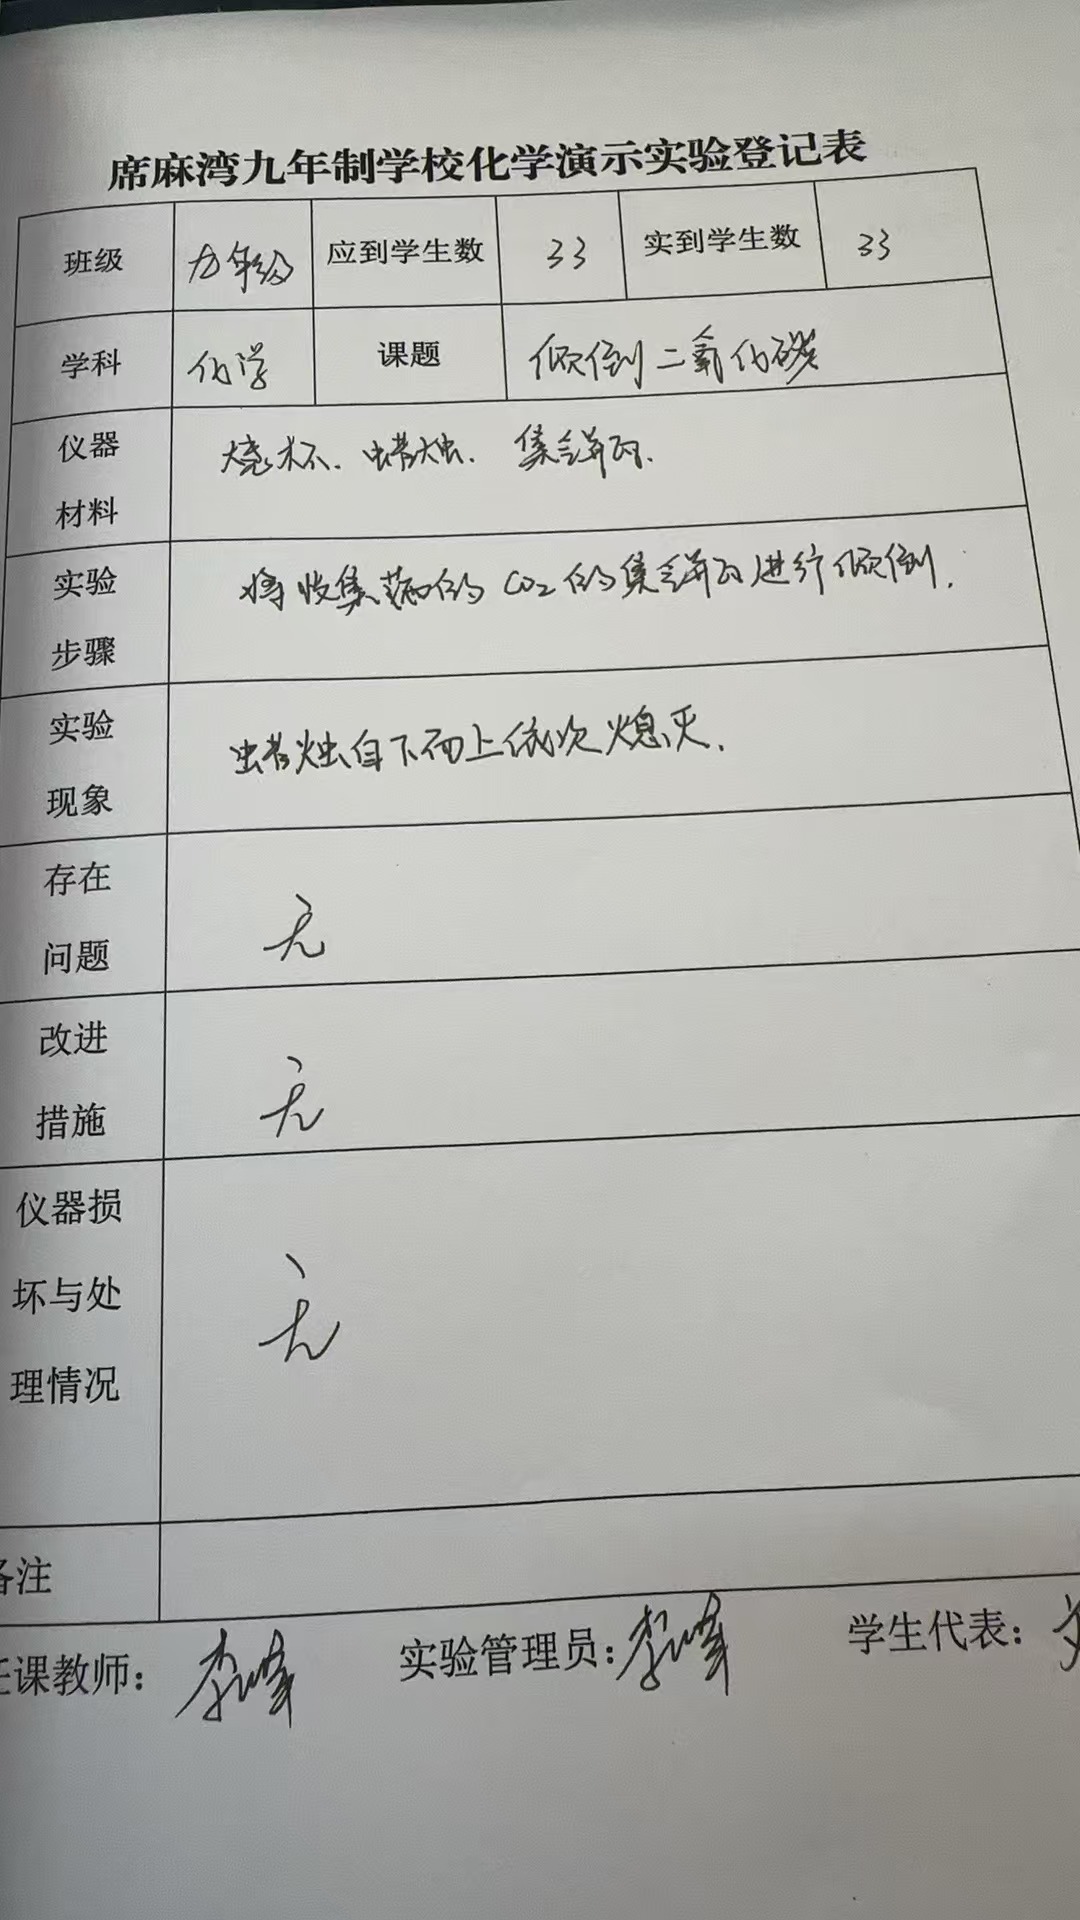 席麻湾九年制学校化学演示实验登记表
班级 九年级 应到学生数 33 实到学生数 33
学科 化学 课题 倾倒二氧化碳
仪器
材料
烧杯. 蜡烛. 集气瓶.
实验
步骤
将收集满的 CO2 的集气瓶进行倾倒.
实验
现象
蜡烛自下而上依次熄灭.
存在
问题
无
改进
措施
无
仪器损
坏与处
理情况
无
备注
任课教师： 实验管理员： 学生代表：